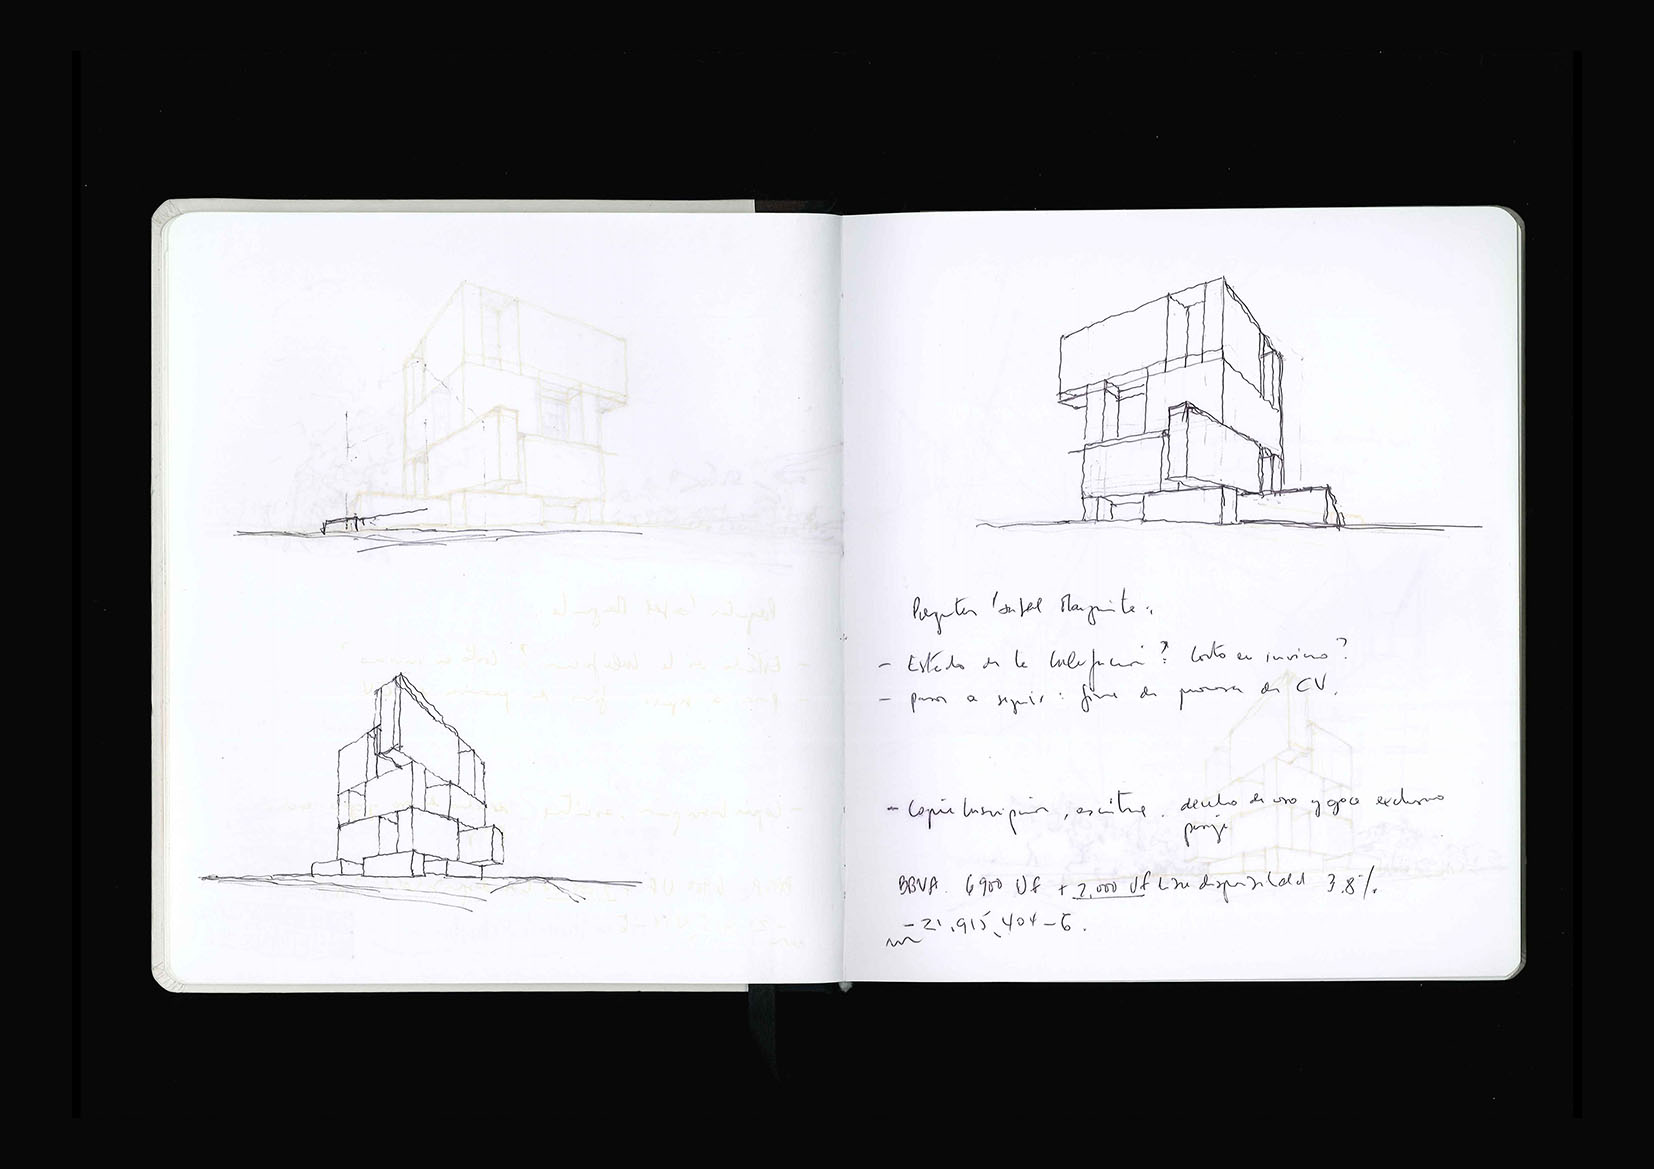 Preguntas Isabel Marguite:
- Estado de la Calefacción? Costo en invierno?
- pasos a seguir: firma de promesa de CV.
- Copia Inscripción, escritura, derecho de uso y goce exclusivo
BBVA. 6900 Uf + 2,000 Uf disponibilidad 3.8%
- 21.915.404-6.